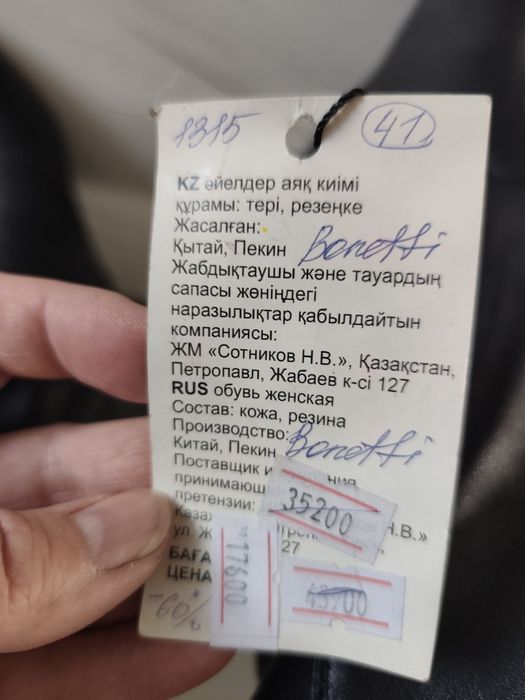 1315 41
KZ әйелдер аяқ киімі
құрамы: тері, резеңке
Жасалған:
Қытай, Пекин Bonetti
Жабдықтаушы және тауардың
сапасы жөніндегі
наразылықтар қабылдайтын
компаниясы:
ЖМ «Сотников Н.В.», Қазақстан,
Петропавл, Жабаев к-сі 127
RUS обувь женская
Состав: кожа, резина
Производство:
Китай, Пекин Bonetti
Поставщик и
принимающ
претензии: 35200
Каза Н.В.»
ул. Ж
БАҒА 17600 27
ЦЕНА
-60%